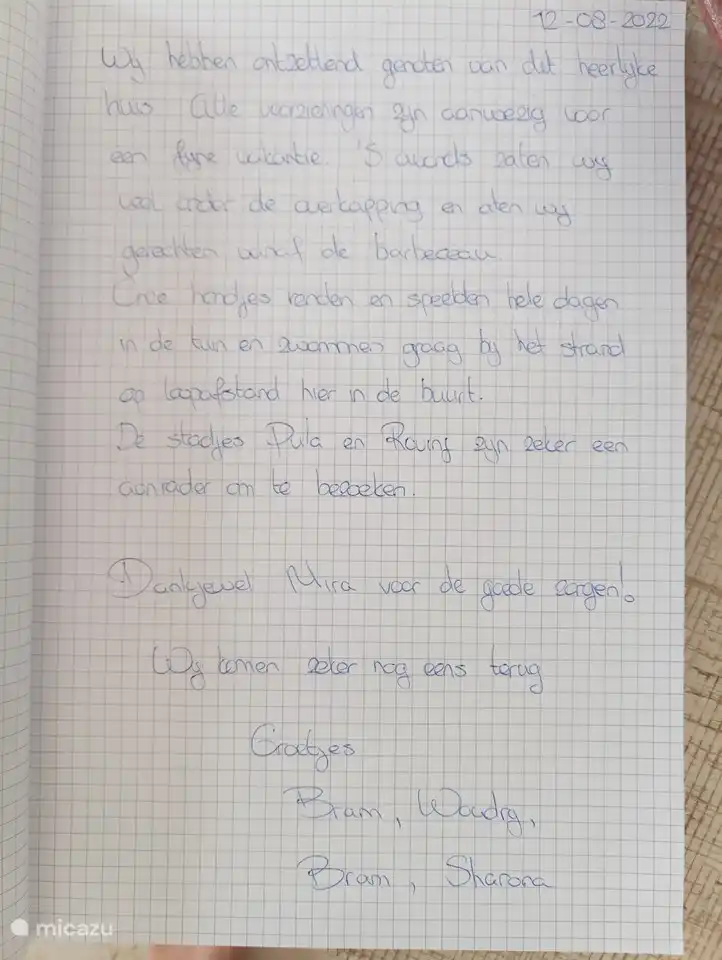 12-08-2022
Wij hebben ontzettend genoten van dit heerlijke
huis Alle voorzieningen zijn aanwezig voor
een fijne vakantie. 'S avonds zaten wij
veel onder de overkapping en aten wij
gerechten vanaf de barbeceau.
Onze hondjes renden en speelden hele dagen
in de tuin en zwommen graag bij het strand
op loopafstand hier in de buurt.
De stadjes Pula en Rovinj zijn zeker een
aanrader om te bezoeken.
Dankjewel Mira voor de goede zorgen!
Wij komen zeker nog eens terug
Groetjes
Bram,
Bram, Sharona
micazu